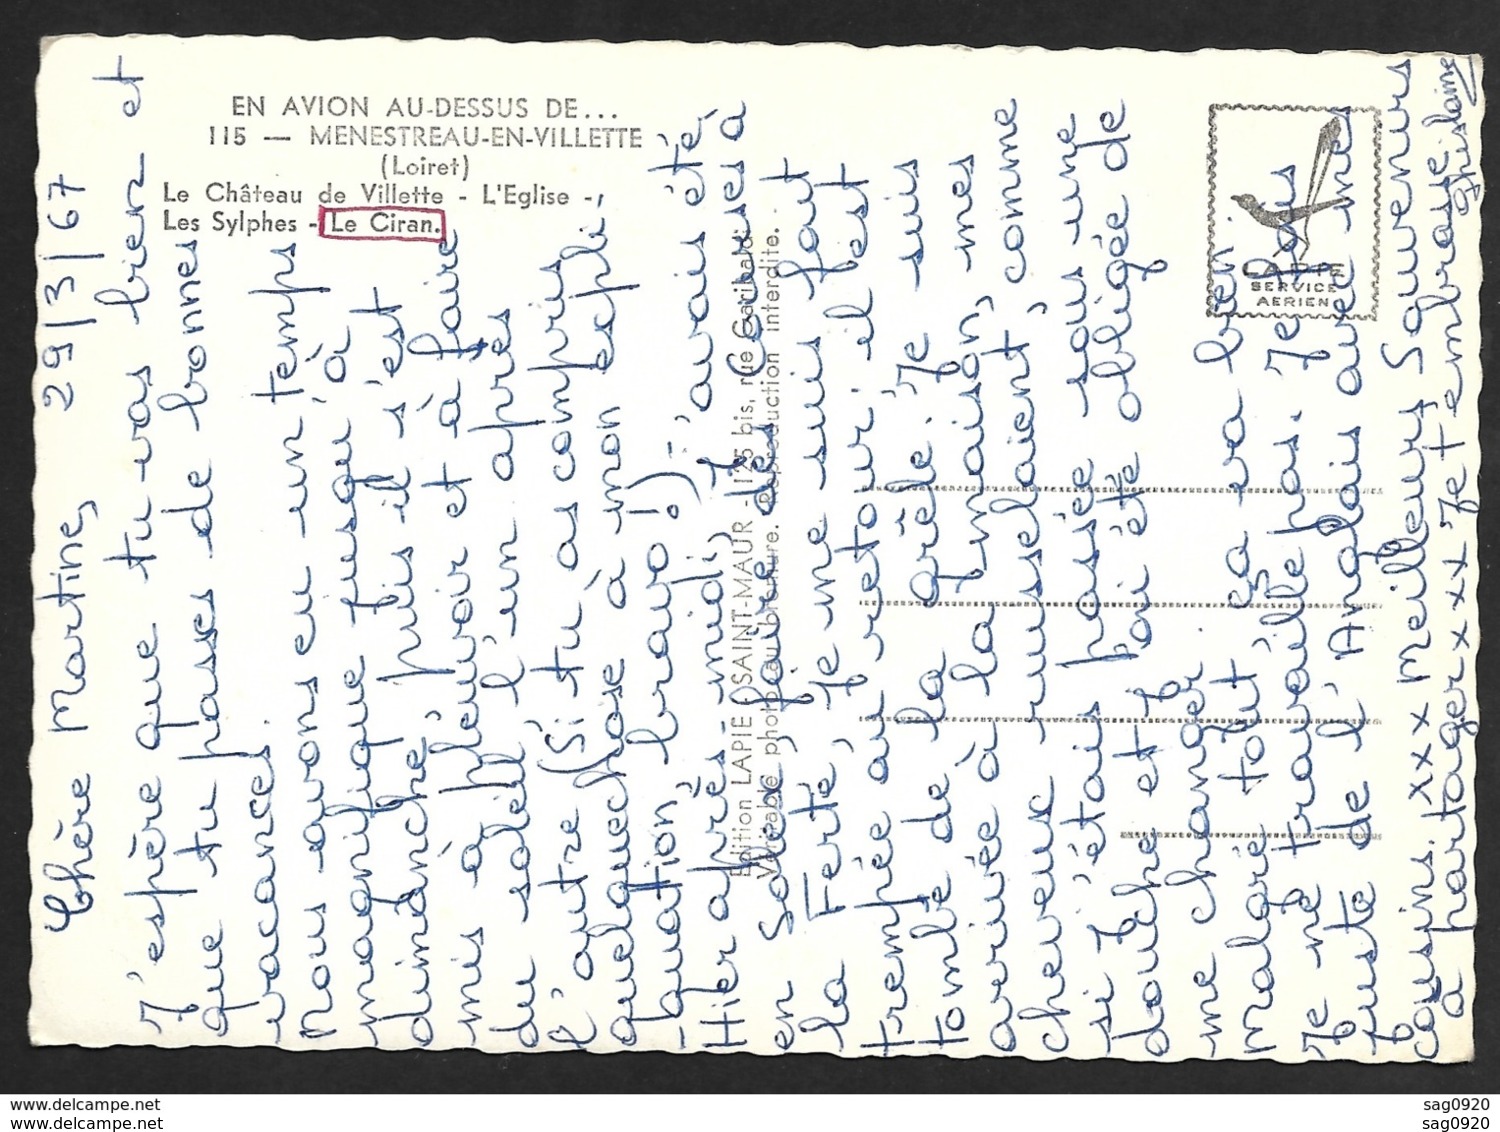 EN AVION AU-DESSUS DE...
115 — MENESTREAU-EN-VILLETTE
(Loiret)
Le Château de Villette - L'Eglise -
Les Sylphes - Le Ciran.
LAPIE
SERVICE
AERIEN
Edition LAPIE - SAINT-MAUR - 125 bis, rue Garibaldi
Véritable photo au bromure. Reproduction interdite.
29/3/67
Chère Martine,
J'espère que tu vas bien et
que tu passes de bonnes
vacances.
Nous avons eu un temps
magnifique jusqu'à
dimanche, puis il s'est
mis à pleuvoir et à faire
du soleil l'un après
l'autre (Si tu as compris
quelquechose à mon expli-
-quation, bravo!)
Hier après-midi, j'avais été
en Solex, faire des Courses à
la Ferté, Je me suis fait
trempée au retour: il est
tombé de la grêle. Je suis
arrivée à la maison, mes
cheveux ruisselaient, comme
si j'étais passée sous une
douche et j'ai été obligée de
me changer.
Malgré tout, ça va bien.
Je ne travaille pas. Je fais
juste de l'Anglais avec mes
cousins. xxx Meilleurs Souvenirs
à partager xxxx Je t'embrasse
Ghislaine
sag0920.delcampe.net
sag0920.delcampe.net
sag0920
sag0920